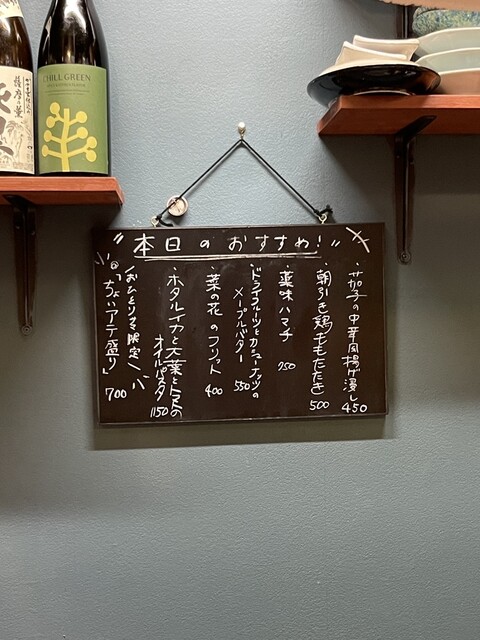 本日のおすすめ!
・茄子の中華風揚げ浸し 450
・朝引き鶏ももたたき 500
・薬味ハマチ 750
・ドライフルーツとカシューナッツの
メープルバター 550
・菜の花のフリット 400
・ホタルイカと大葉とトマトの
オイルパスタ 1150
おひとりさま限定
「ちょいアテ盛り」 700
CHILL GREEN